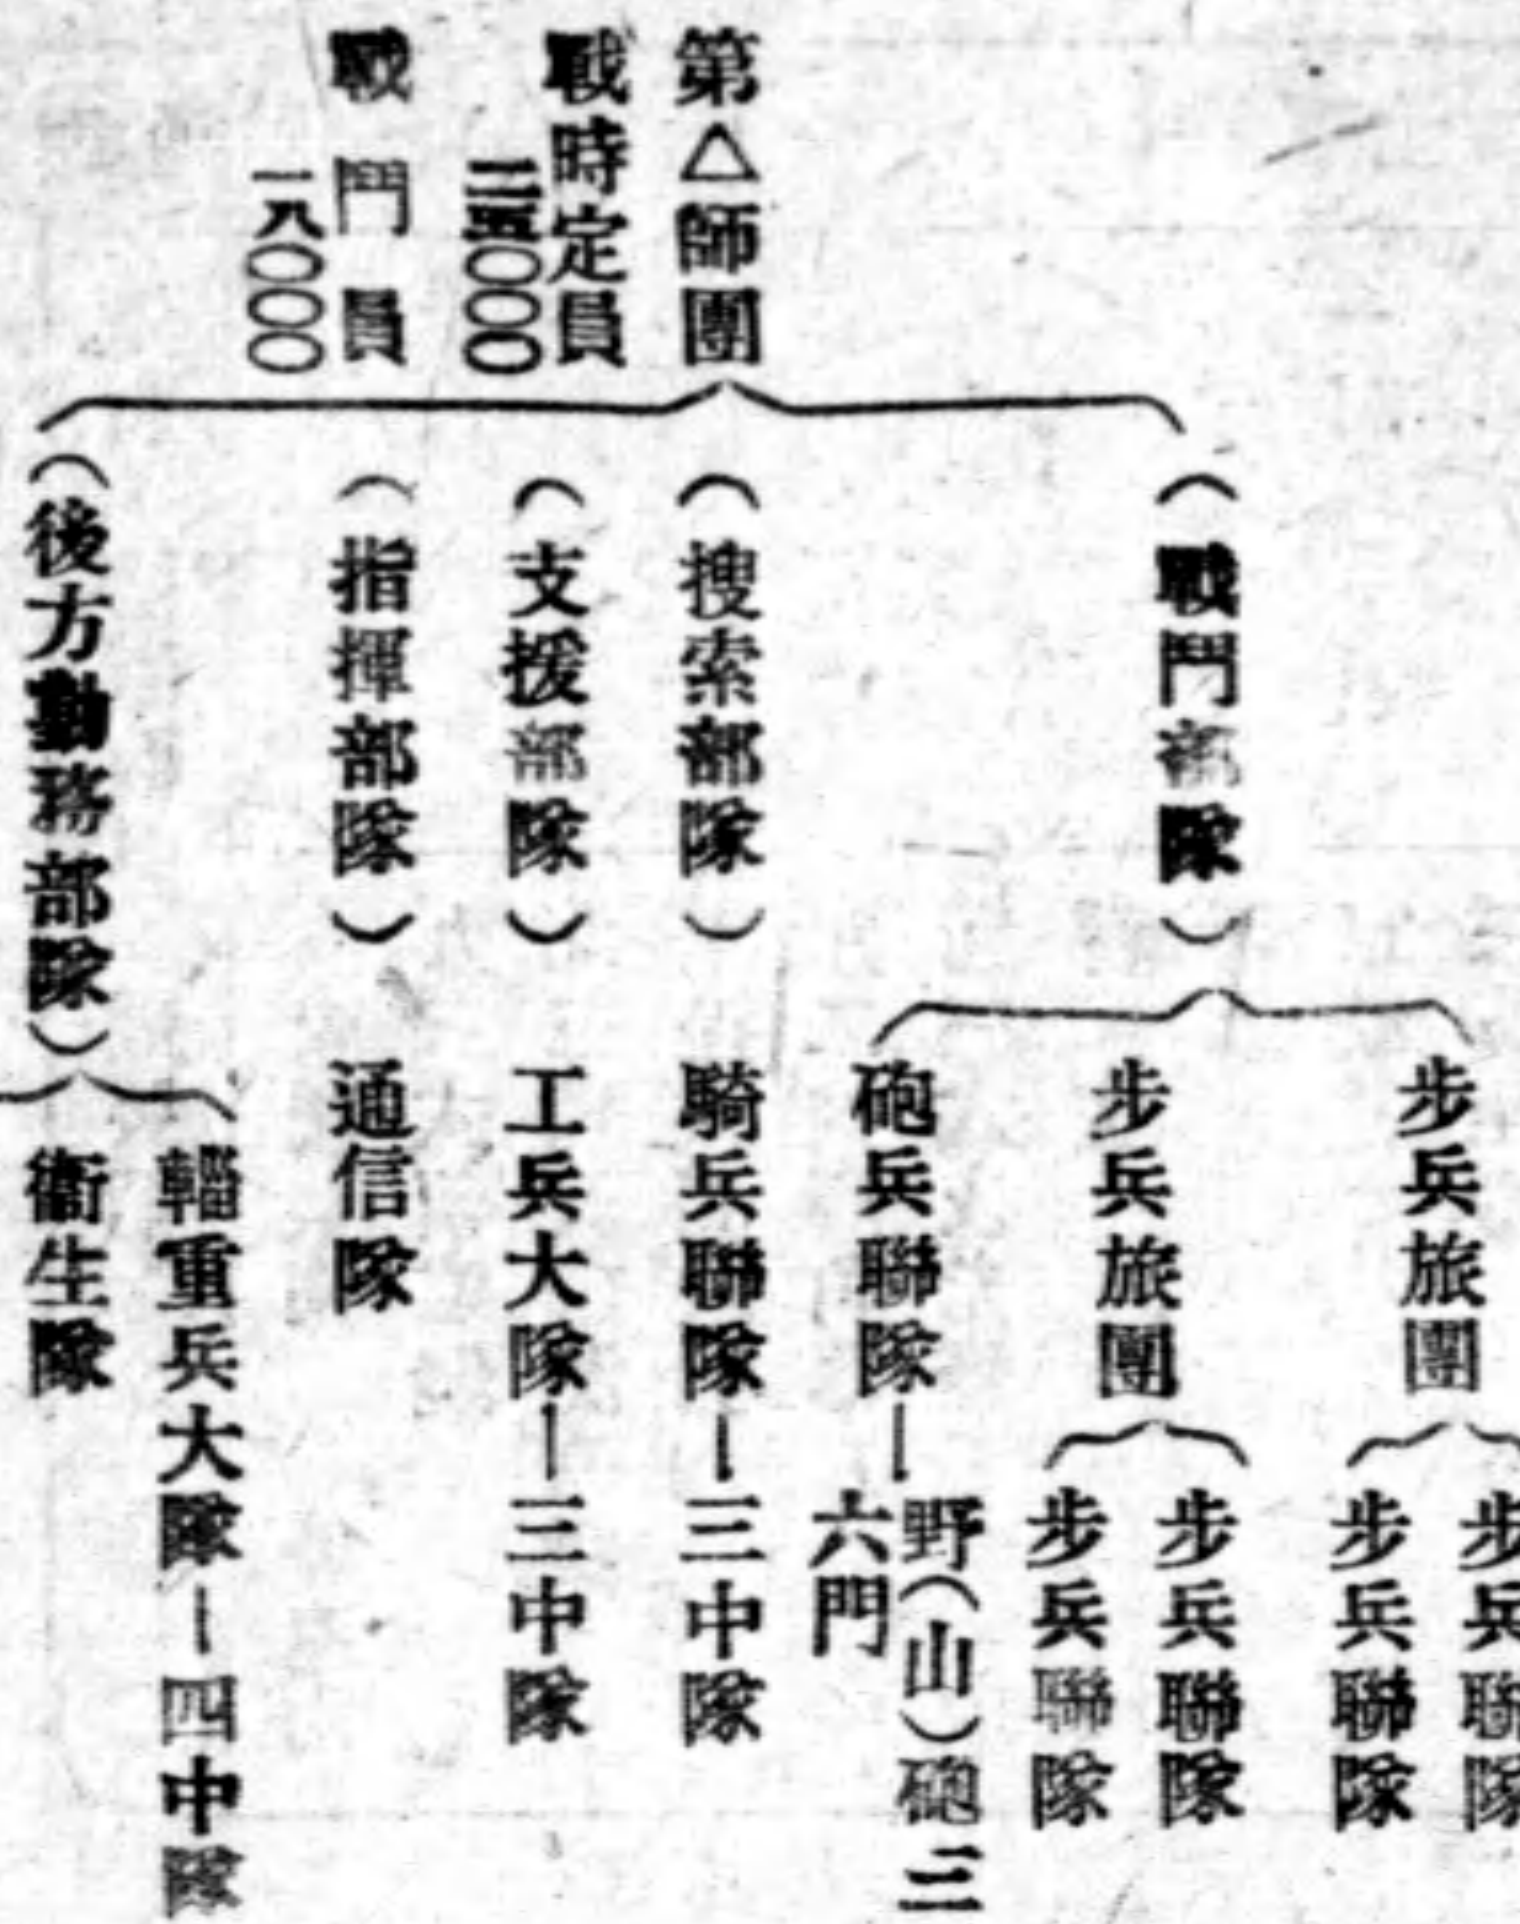 第△師團
戰時定員
二五〇〇〇
戰鬥員
一八〇〇〇
(戰鬥部隊)
步兵旅團
步兵聯隊
步兵聯隊
步兵旅團
步兵聯隊
步兵聯隊
砲兵聯隊—野(山)砲三
六門
(搜索部隊)
騎兵聯隊—三中隊
(支援部隊)
工兵大隊—三中隊
(指揮部隊)
通信隊
(後方勤務部隊)
輜重兵大隊—四中隊
衞生隊